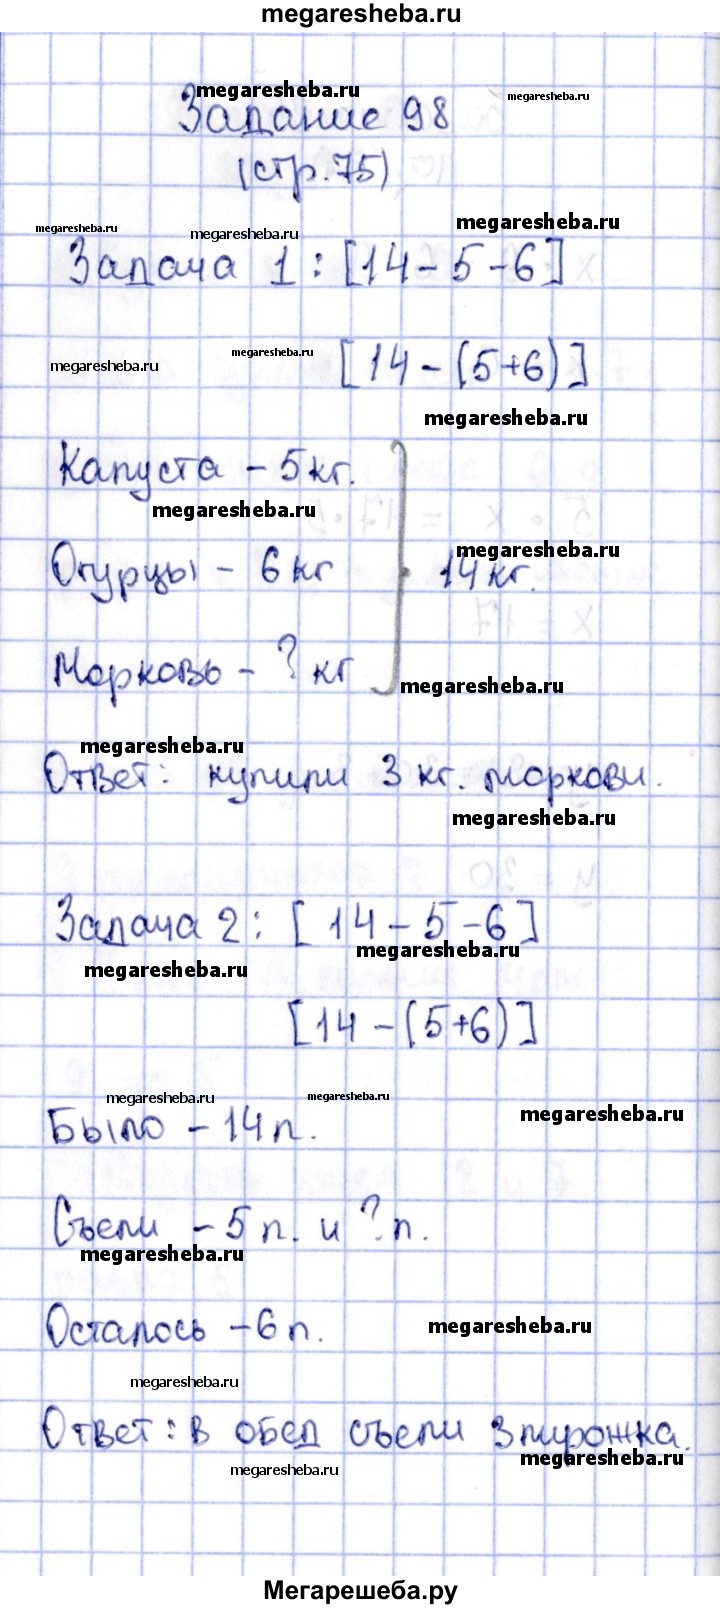 megaresheba.ru
megaresheba.ru
megaresheba.ru
Задание 98
(стр.75)
megaresheba.ru
megaresheba.ru
megaresheba.ru
Задача 1: [14-5-6]
megaresheba.ru
megaresheba.ru
[14-(5+6)]
megaresheba.ru
Капуста - 5кг.
megaresheba.ru
megaresheba.ru
Огурцы - 6 кг
14 кг.
Морковь - ? кг
megaresheba.ru
megaresheba.ru
Ответ: купили 3 кг. моркови.
megaresheba.ru
Задача 2: [14-5-6]
megaresheba.ru
megaresheba.ru
[14-(5+6)]
megaresheba.ru
megaresheba.ru
megaresheba.ru
Было - 14 п.
Съели - 5 п. и ? п.
megaresheba.ru
megaresheba.ru
Осталось - 6 п.
megaresheba.ru
Ответ: в обед съели 3 пирожка.
megaresheba.ru
megaresheba.ru
Мегарешеба.ру